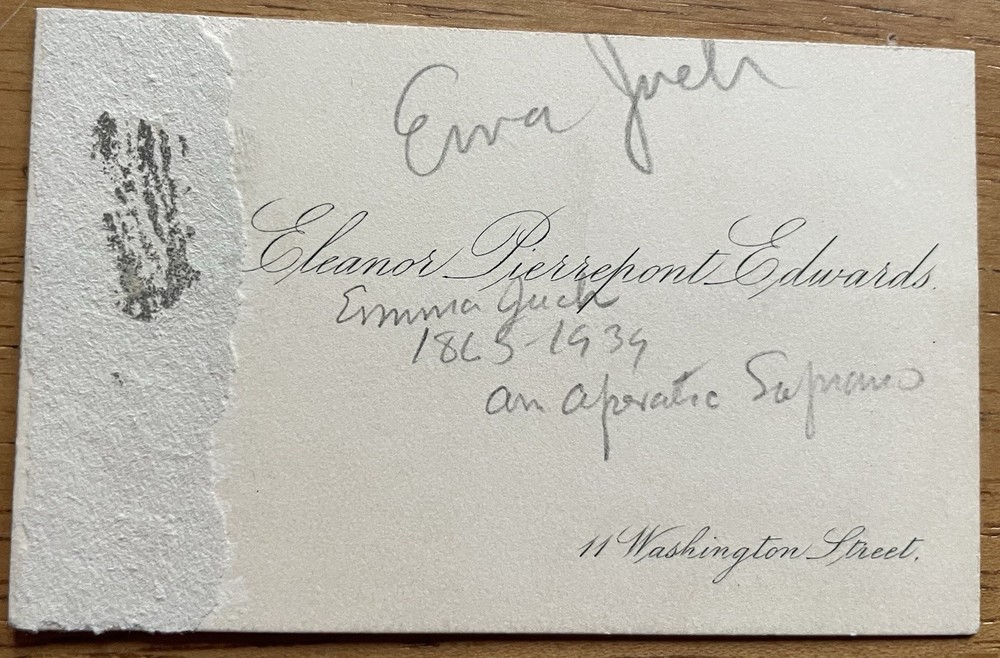 Emma Juch
Eleanor Pierrepont Edwards.
Emma Juch
1865-1939
an operatic Soprano
11 Washington Street.